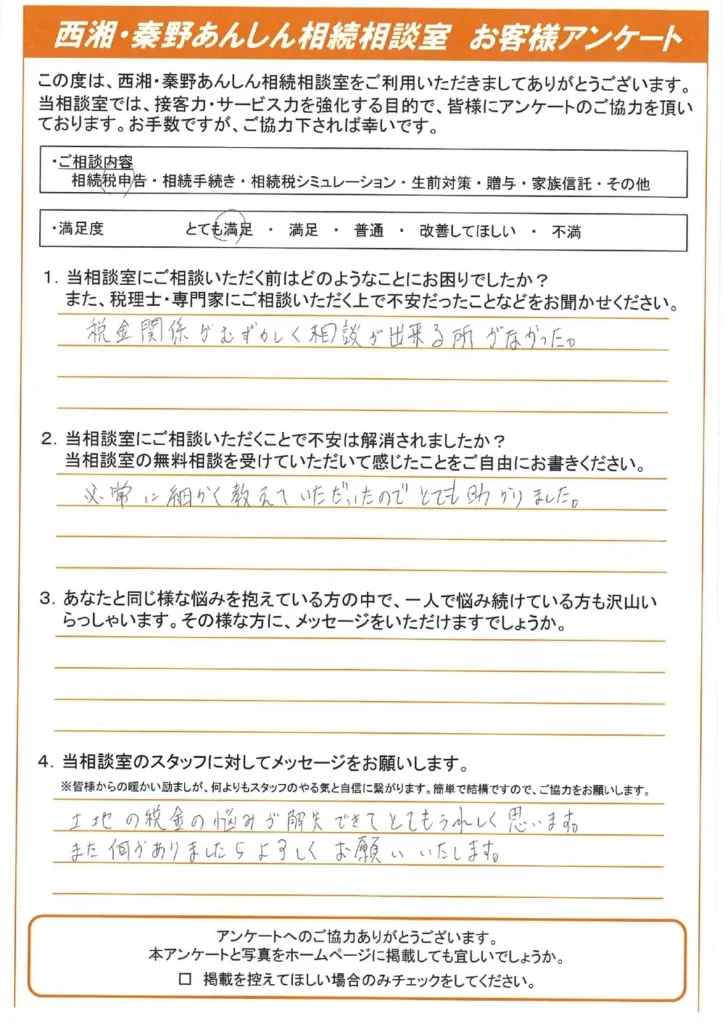 西湘・秦野あんしん相続相談室 お客様アンケート
この度は、西湘・秦野あんしん相続相談室をご利用いただきましてありがとうございます。
当相談室では、接客力・サービス力を強化する目的で、皆様にアンケートのご協力を頂い
ております。お手数ですが、ご協力下されば幸いです。
・ご相談内容
相続税申告・相続手続き・相続税シミュレーション・生前対策・贈与・家族信託・その他
・満足度 とても満足 ・ 満足 ・ 普通 ・ 改善してほしい ・ 不満
1. 当相談室にご相談いただく前はどのようなことにお困りでしたか？
また、税理士・専門家にご相談いただく上で不安だったことなどをお聞かせください。
税金関係がむずかしく相談が出来る所がなかった。
2. 当相談室にご相談いただくことで不安は解消されましたか？
当相談室の無料相談を受けていただいて感じたことをご自由にお書きください。
必常に細かく教えていただいたのでとても助かりました。
3. あなたと同じ様な悩みを抱えている方の中で、一人で悩み続けている方も沢山い
らっしゃいます。その様な方に、メッセージをいただけますでしょうか。
4. 当相談室のスタッフに対してメッセージをお願いします。
※皆様からの暖かい励ましが、何よりもスタッフのやる気と自信に繋がります。簡単で結構ですので、ご協力をお願いします。
土地の税金の悩みが解失できてとてもうれしく思います。
また何がありましたらよろしくお願いいたします。
アンケートへのご協力ありがとうございます。
本アンケートと写真をホームページに掲載しても宜しいでしょうか。
□ 掲載を控えてほしい場合のみチェックをしてください。